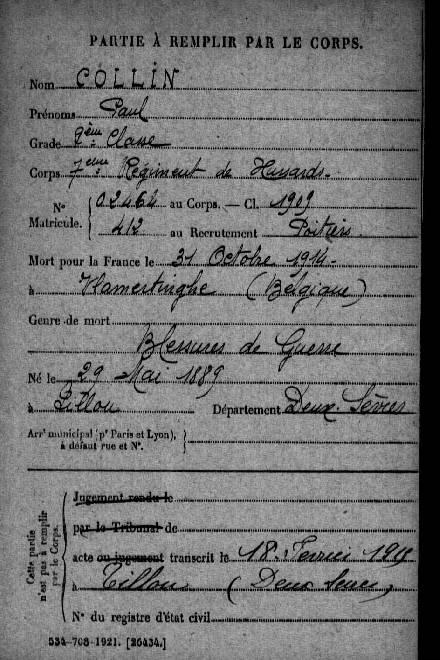 PARTIE À REMPLIR PAR LE CORPS.
Nom COLLIN
Prénoms Paul
Grade 2ème Classe
Corps 7ème Régiment de Hussards.
N° 02464 au Corps. — Cl. 1909
Matricule. 412 au Recrutement Poitiers
Mort pour la France le 31 Octobre 1914
à Vlamertinghe (Belgique)
Genre de mort
Blessures de Guerre
Né le 29 Mai 1889
à Tillou Département Deux-Sèvres
Arrt municipal (pr Paris et Lyon),
à défaut rue et N°.
Cette partie
n'est pas à remplir
par le Corps.
Jugement rendu le
par le Tribunal de
acte ou jugement transcrit le 18 Février
à Tillou (Deux Sèvres)
N° du registre d'état civil
534-708-1921. [26434.]